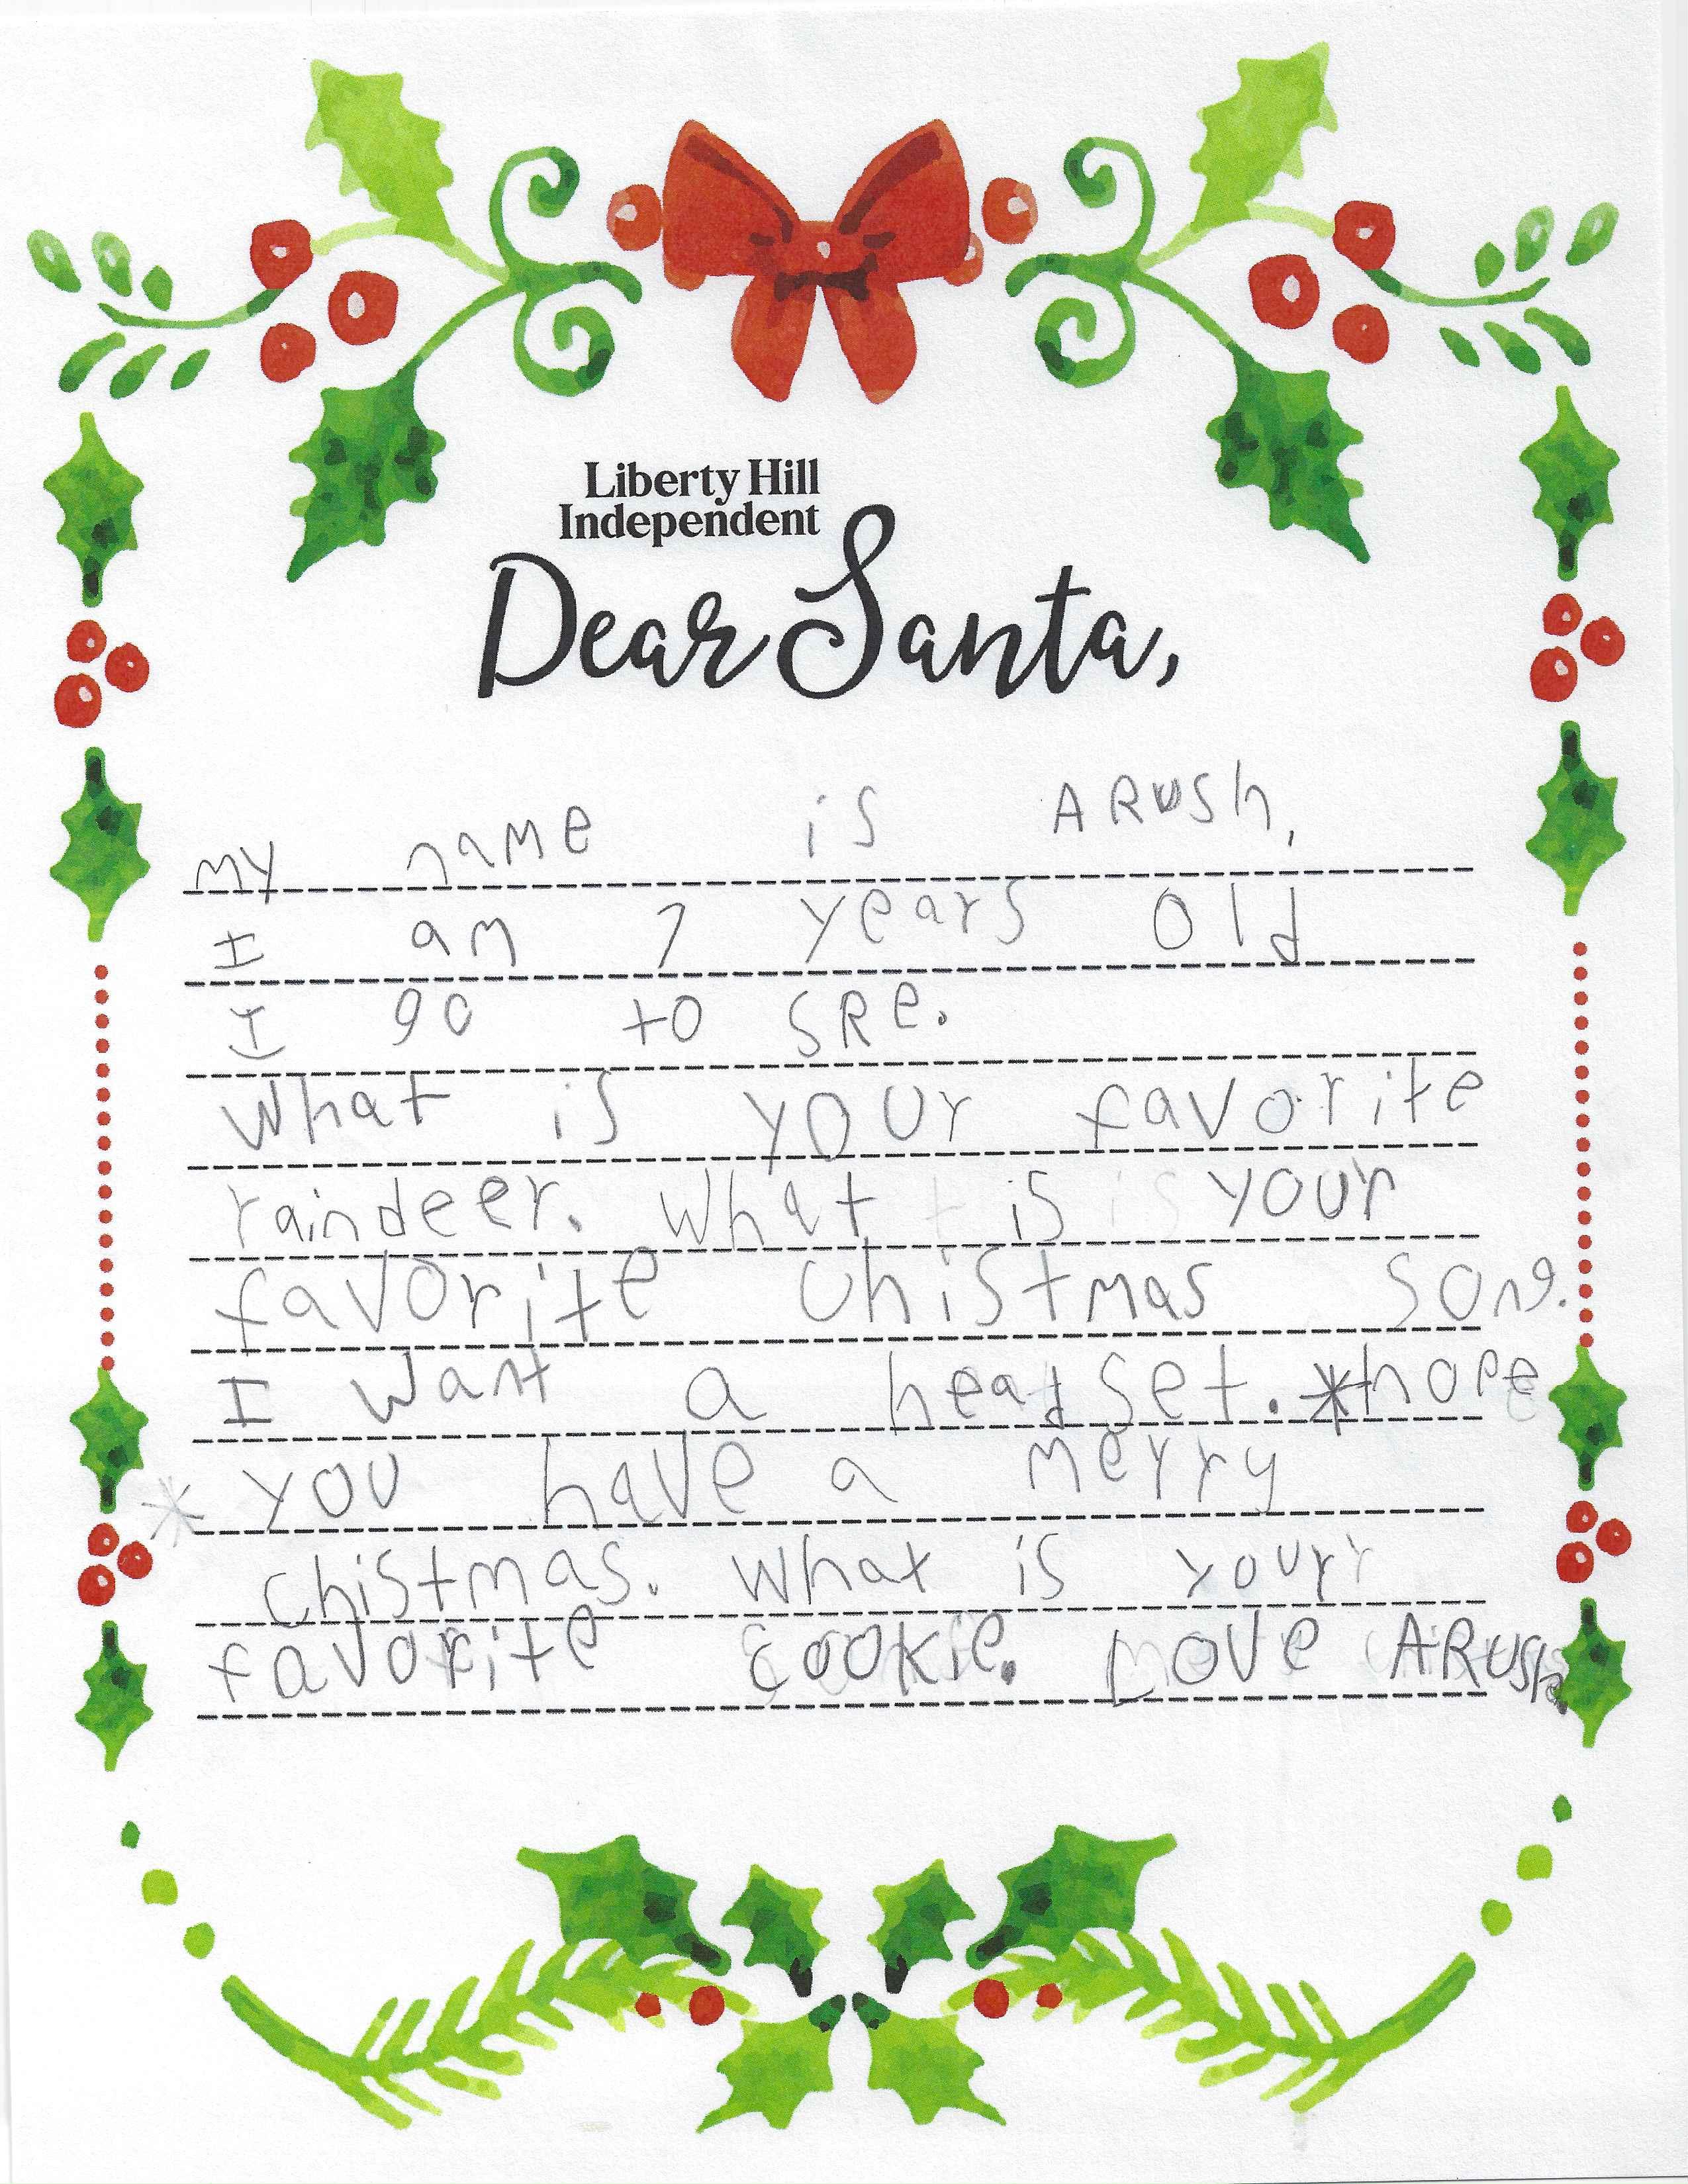 Liberty Hill
Independent
Dear Santa,
My name is ARUSh,
I am 7 years old
I go to SRe.
What is your favorite
raindeer. What is your
favorite Chistmas Song.
I want a headset. *hope
* you have a merry
Chistmas. What is your
favorite cookie. Love ARUSh.